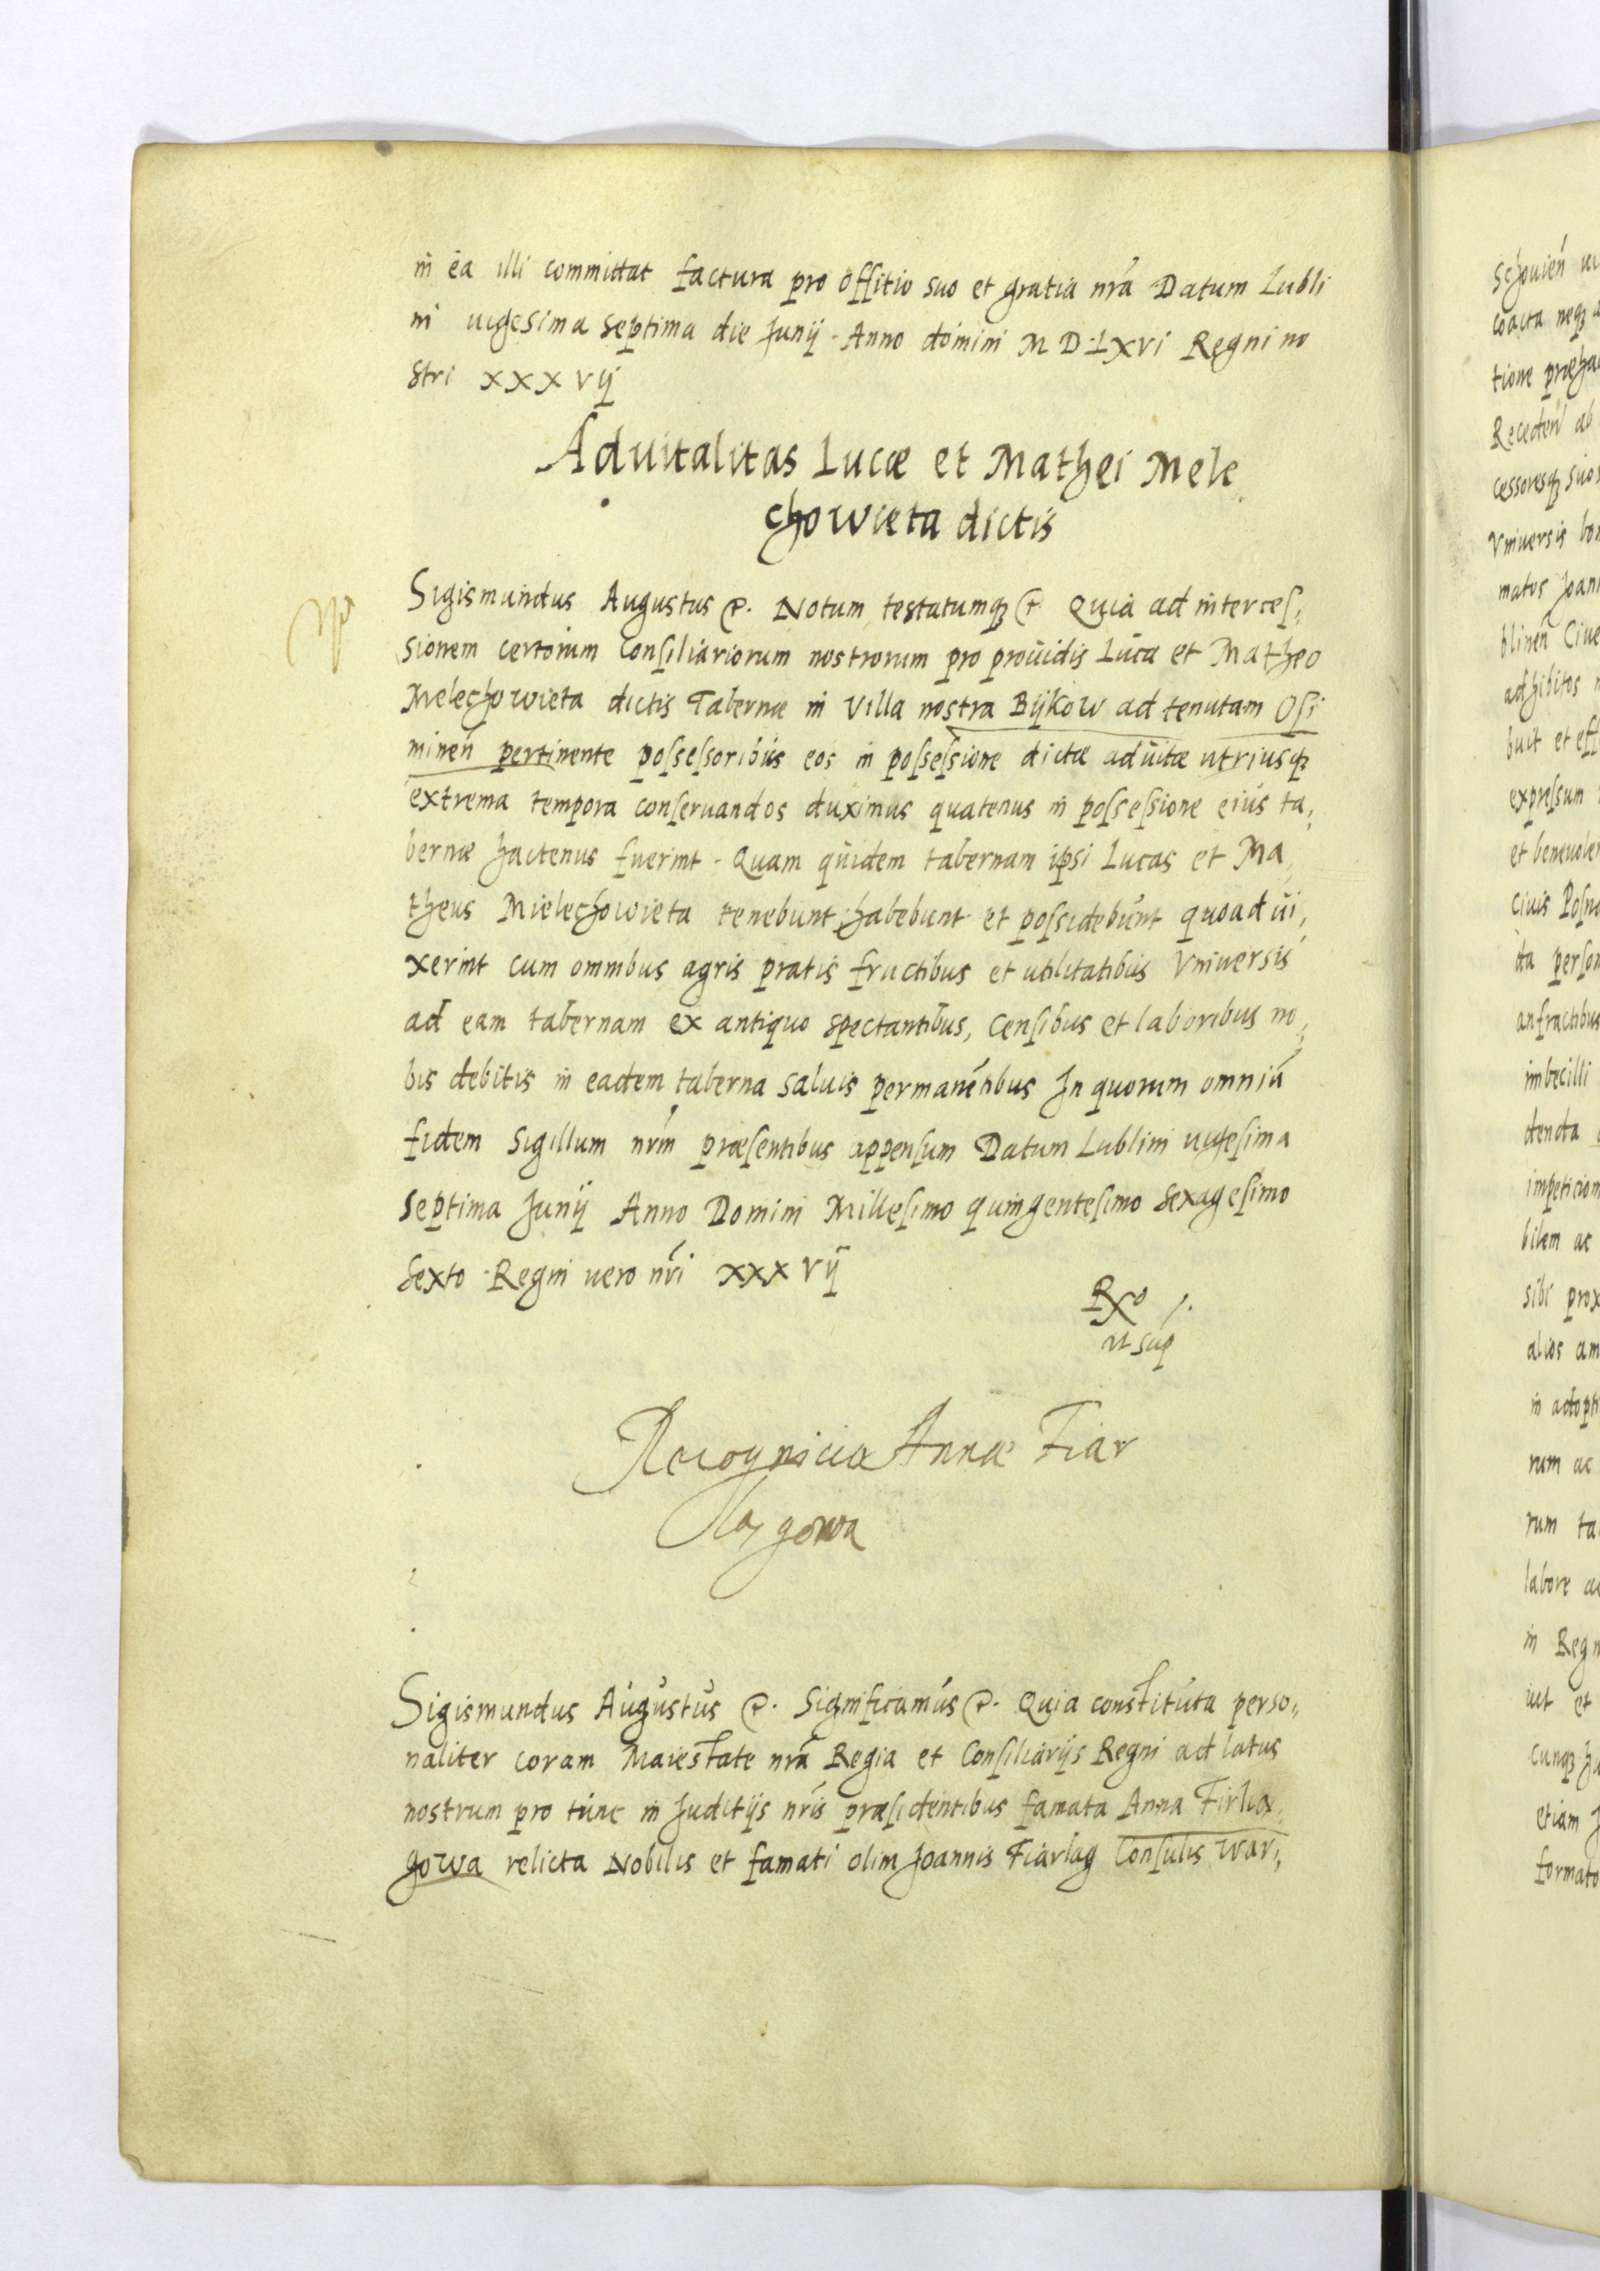 in ea illi committat factura pro offitio suo et gratia nrã Datum Lubli
ni uigesima septima die Junij Anno domini M D LXVI Regni no
stri XXXVIJ
Aduitalitas Lucæ et Mathei Mele
chowieta dictis
Sigismundus Augustus &. Notum testatumqꝫ & Quia ad interceſ,
sionem certorum conſiliariorum nostrorum pro prouidis Luca et Matheo
Melechowieta dictis Tabernæ in villa nostra Bijkow ad tenutam Oſi
minen̄ pertinente poſseſsoribus eos in poſseſsione dictæ aduitæ utriusqꝫ
extrema tempora conſeruandos duximus quatenus in poſseſsione eius ta,
bernæ hactenus fuerint. Quam quidem tabernam ipsi Lucas et Ma,
theus Mielechowieta tenebunt, habebunt et poſsidebunt quoad ui,
xerint cum omnibus agris pratis fructibus et utilitatibus Vniuersis
ad eam tabernam ex antiquo spectantibus, Cenſibus et laboribus no,
bis debitis in eadem taberna saluis permanētibus In quorum omniū
fidem Sigillum nrm̃ præſentibus appenſum Datum Lublini uigeſima
Septima Junij Anno Domini Milleſimo quingenteſimo sexageſimo
Sexto Regni uero nri̅ XXXVIJ
Rᵒ /.
ut sup
Recognicio Annæ Fiar
lagowa
Sigismundus Augustus &. Significamus &. Quia constituta perso,,
naliter coram Maiestate nrã Regia et Conſiliarijs Regni ad latus
nostrum pro tunc in Juditijs nris̅ præſidentibus famata Anna Firla,
gowa relicta Nobilis et famati olim Joannis Fiarlag Conſulis War,,
coacta neqꝫ
Recedeń ab
cessoresqꝫ suos
Vniuersis
blineń Ciue
adhibitos
buit et eff
expreſsum
et beneuolen
ciuis Poſna
anfractibus
imbecilli
denda
impeticion
bilem ac
sibi prox
alios am
in adopti
rum ac
rum ta
labore ac
in Regn
iut et
cunqꝫ
etiam J
formato